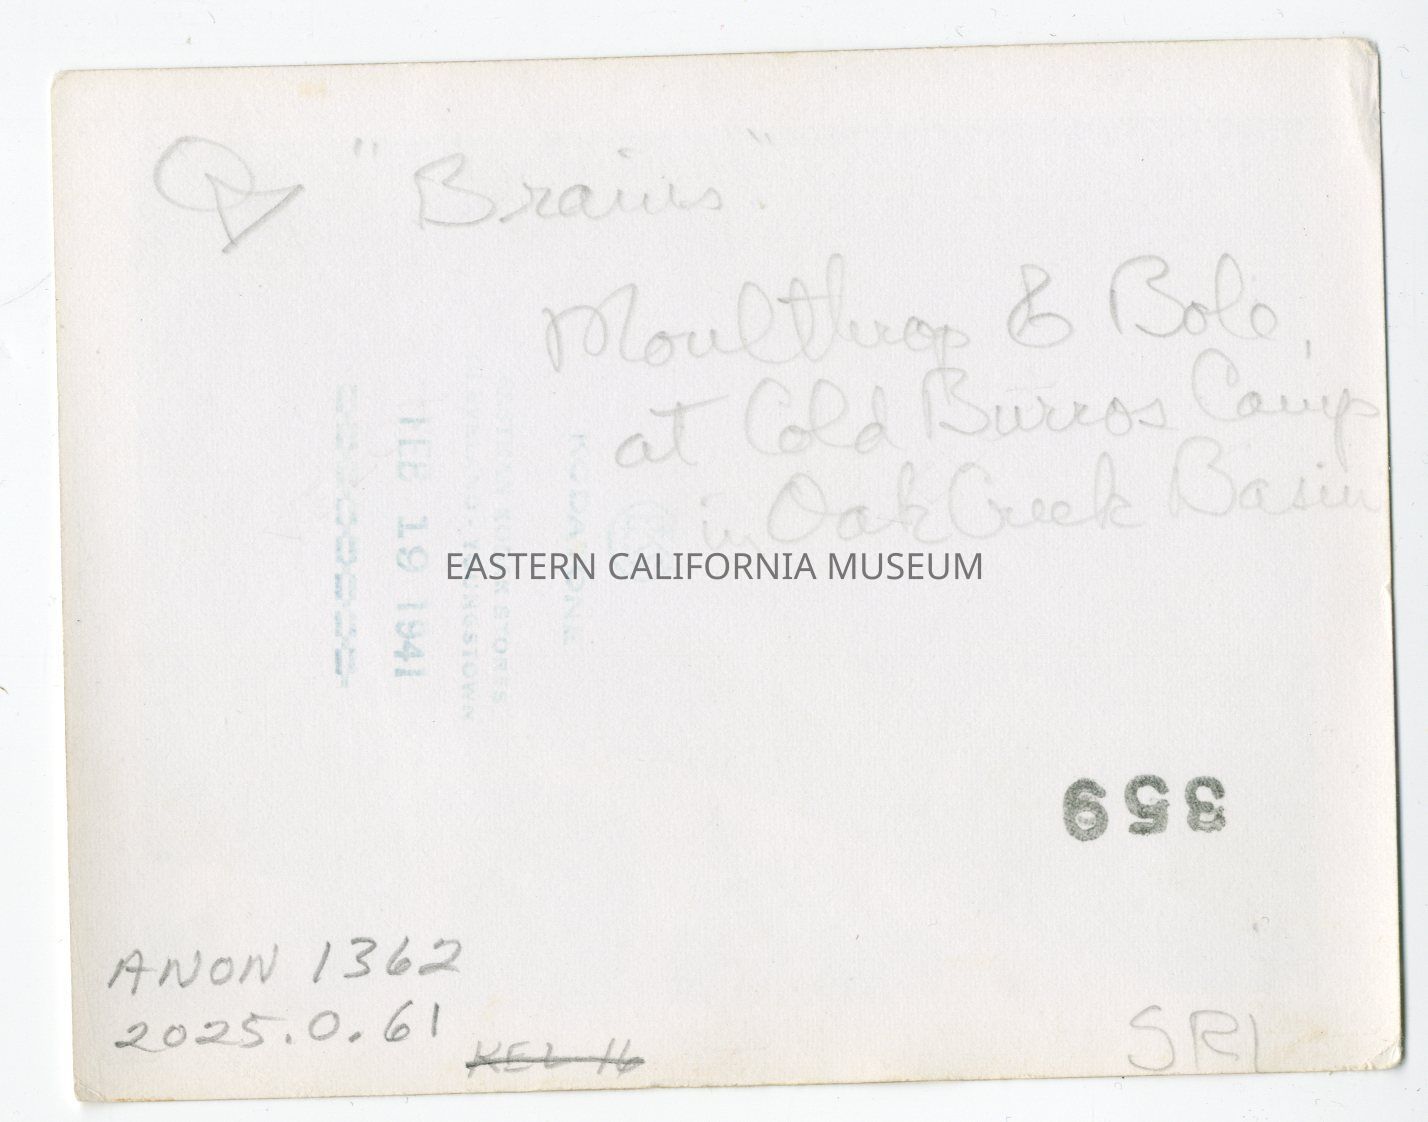 "Brains"
Moulthrop & Bole,
at Cold Burros Camp
in Oak Creek Basin
FEB 19 1941
EASTERN CALIFORNIA MUSEUM
359
ANON 1362
2025.0.61
KEL 16
SRI